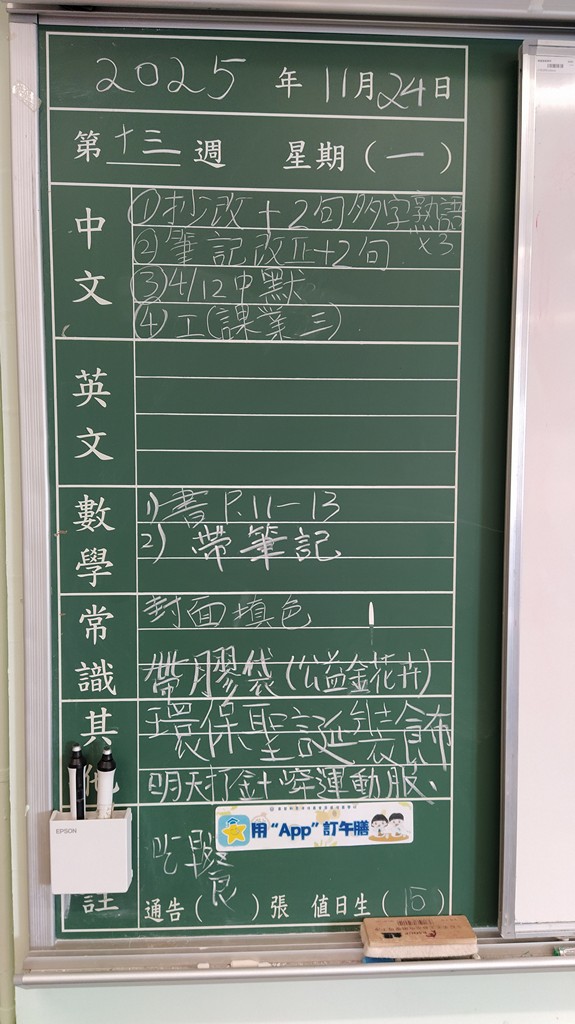 2025年11月24日
第十三週 星期(一)
中文
①抄改+2句多字熟語x3
②筆記改II+2句
③4/12中默
④工(課業三)
英文
數學
1)書P.11-13
2)帶筆記
常識
封面填色
帶膠袋(公益金花卉)
其他
環保聖誕裝飾
明天打針穿運動服、
EPSON
用“App”訂午膳
吃
註
通告( )張 值日生(15)